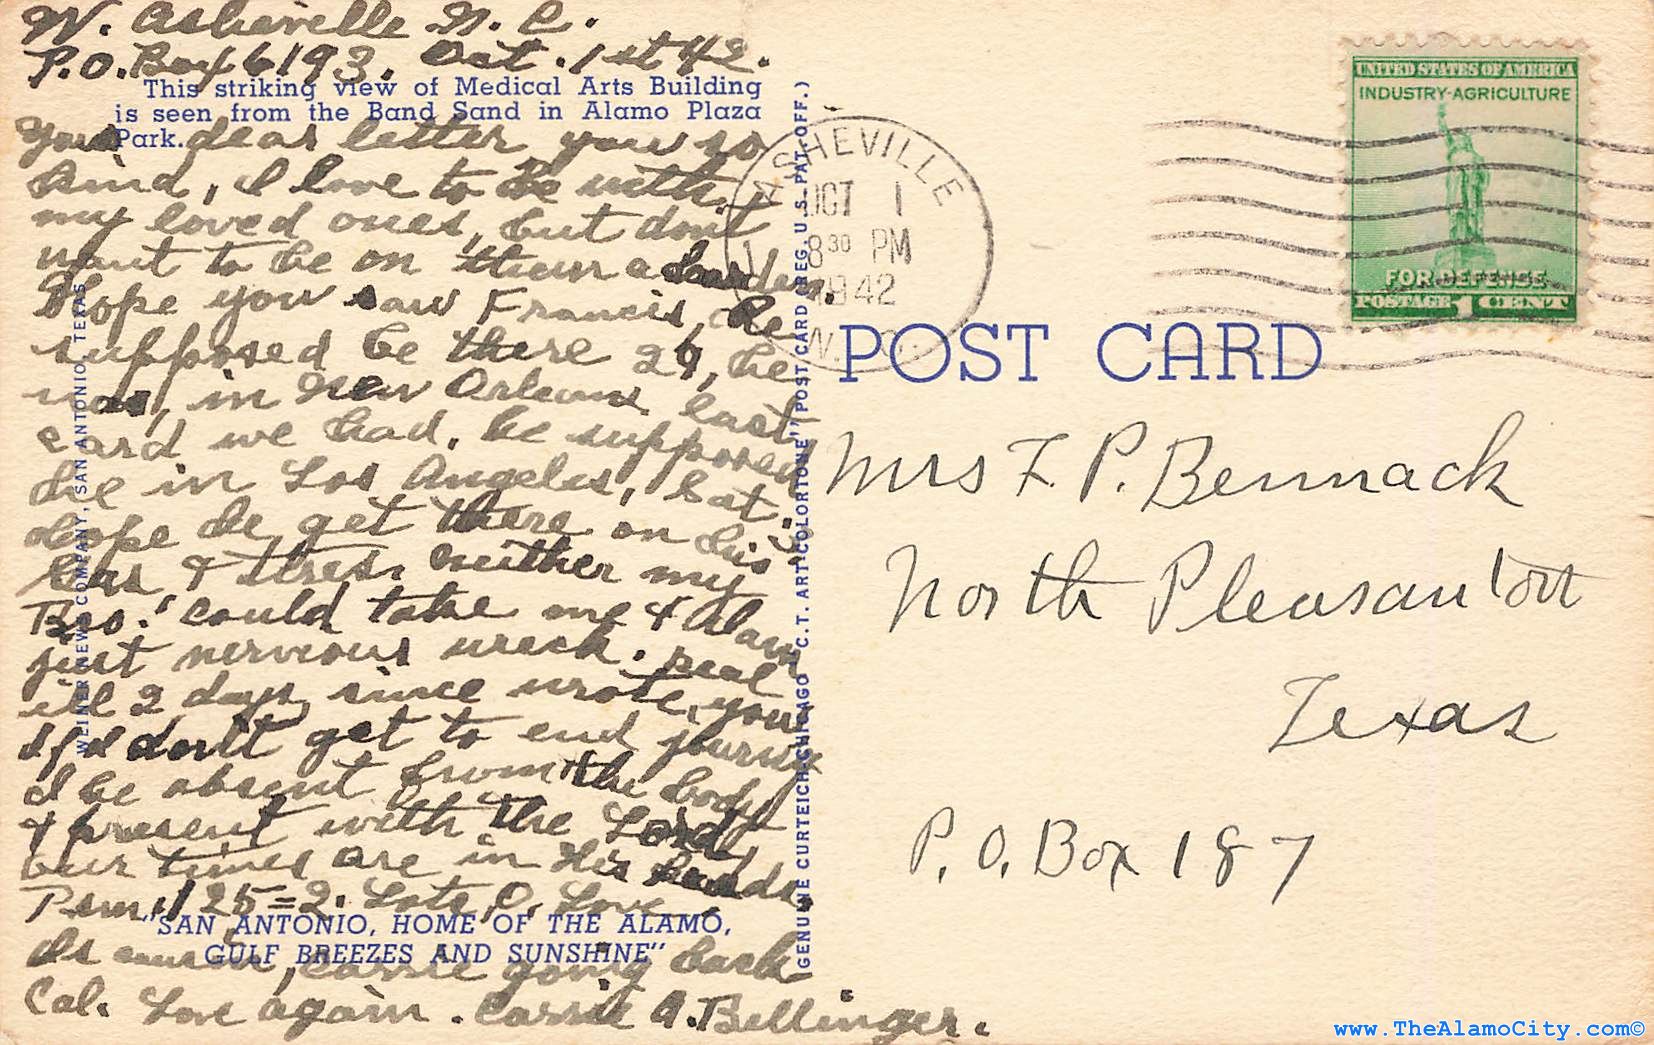 W. Asheville N. C.
P.O. Box 6193. Oct. 1st 42.
This striking view of Medical Arts Building
is seen from the Band Sand in Alamo Plaza
Park.
Your dear letter you so
kind, I love to be with
my loved ones, but dont
want to be on them a burden.
Hope you saw Francis, he
supposed be there 26, he
was, in New Orleans last
card we had. he supposed
be in Los Angeles, Sat.
Hope he get there on his
Gas & tires. neither my
Bro. could take me & I am
just nervous wreck. real
ill 2 days since wrote you
If I don't get to end journey
I be absent from the body
& present with the Lord
our times are in His hands.
Psm. 125=2. Lots O, Love
"SAN ANTONIO, HOME OF THE ALAMO,
GULF BREEZES AND SUNSHINE"
Is cousin, Carrie going back
Cal. Love again. Carrie A. Bellinger.
WEINER NEWS COMPANY, SAN ANTONIO, TEXAS
GENUINE CURTEICH-CHICAGO "C.T. ART-COLORTONE" POST CARD (REG. U.S. PAT. OFF.)
ASHEVILLE
OCT 1
8 30 PM
1942
N. C.
UNITED STATES OF AMERICA
INDUSTRY-AGRICULTURE
FOR DEFENSE
POSTAGE 1 CENT
POST CARD
Mrs F. P. Bennack
North Pleasanton
Texas
P. O. Box 187
www.TheAlamoCity.com©